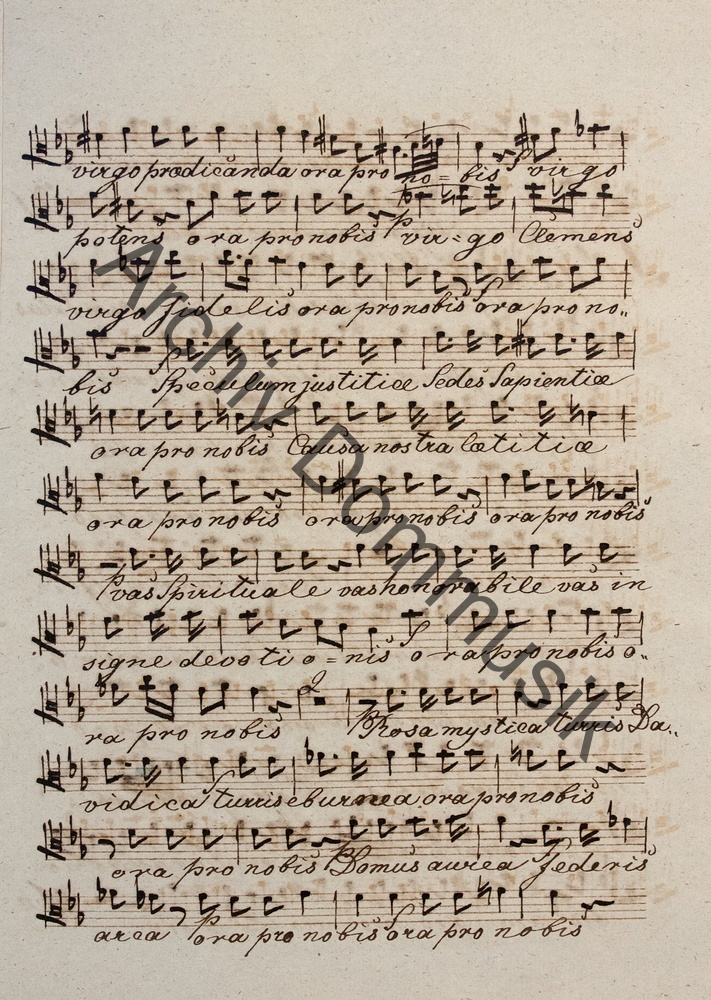 virgo prædicanda ora pro no = bis virgo
potens ora pro nobis vir = go Clemens
virgo fidelis ora pro nobis ora pro no„
bis Speculum justitiæ Sedes Sapientiæ
ora pro nobis Causa nostra lætitiæ
ora pro nobis ora pro nobis ora pro nobis
vas Spirituale vas honorabile vas in
signe devoti o = nis o - ra pro nobis o„
ra pro nobis 2 Rosa mystica turris Da„
vidica turris eburnea ora pro nobis
ora pro nobis Domus aurea federis
arca ora pro nobis ora pro nobis
Archiv Dommusik